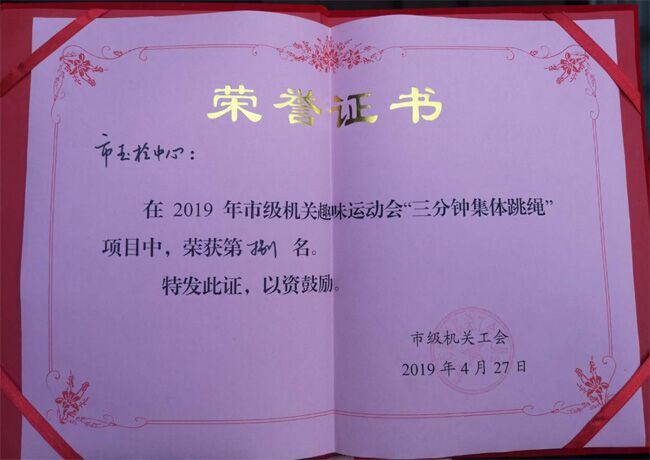 荣誉证书
市玉检中心：
在 2019 年市级机关趣味运动会“三分钟集体跳绳”
项目中，荣获第 捌 名。
特发此证，以资鼓励。
市级机关工会
2019 年 4 月 27 日